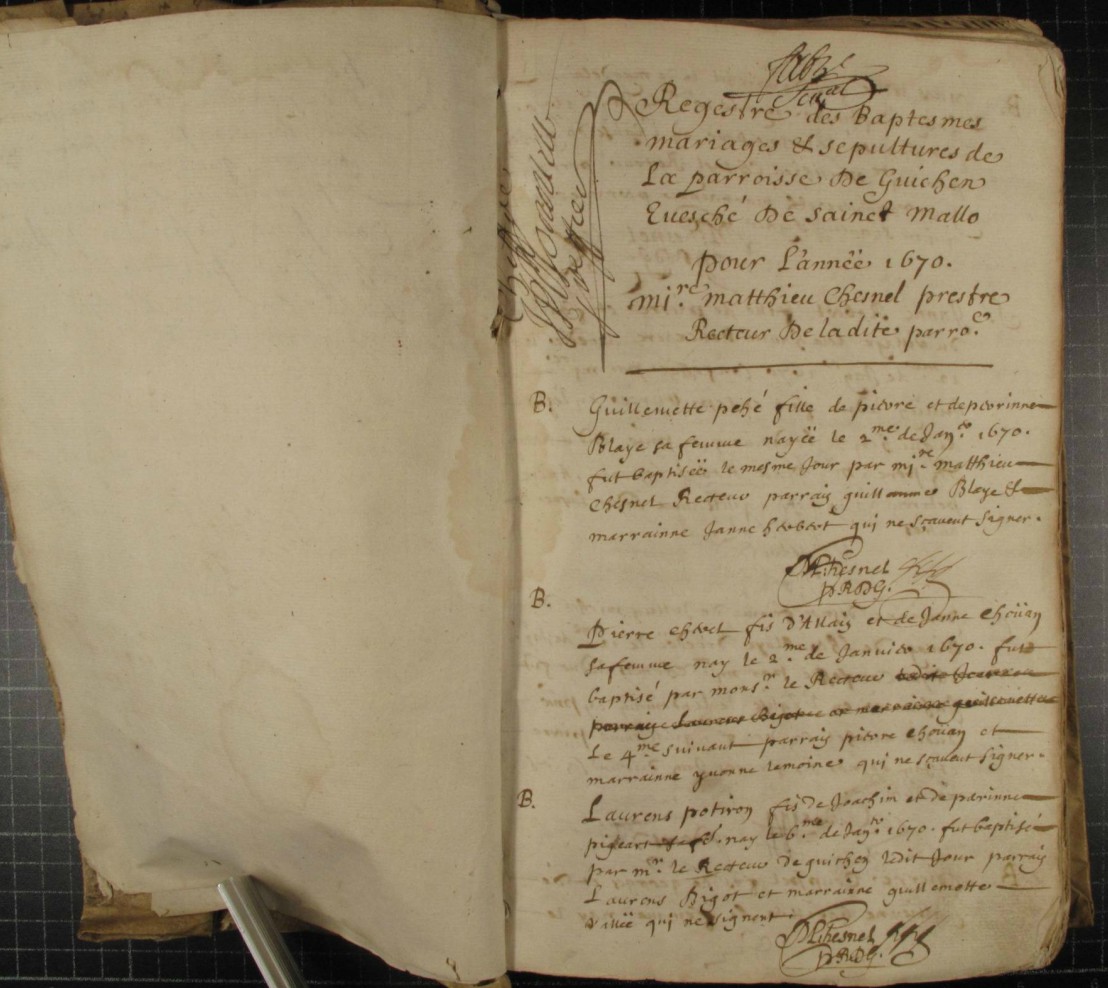 Regestre des Baptesmes
mariages & sepultures de
La parroisse De Guichen
Evesché De sainct Mallo
pour L'année 1670.
mi.re matthieu Chesnel prestre
Recteur De ladite parro.e
B. Guillemette pehé fille de pierre et de perrinne
Blaye sa femme nayée le 2.me de Jan.er 1670.
fut baptiseë le mesme Jour par mi.re matthieu
Chesnel Recteur parrain guillaumes Blaye &
marrainne Janne herbert qui ne sçavent signer.
M Chesnel
PRDG.
B. Pierre fis D'Allain et de Janne Choüan
sa femme nay le 2.me de Janvier 1670. fut
baptisé par mons.r le Recteur
parrain Laurens Bigot et marrainne guillemette
Le 4.me suivant parrain pierre Choüan et
marrainne yvonne lemoine qui ne sçavent signer.
B. Laurens potiron fis de Joachin et de parinne
pigeart sa fe. nay le 6.me de Jan.er 1670. fut baptisé
par m.r le Recteur de guichen ledit Jour parrain
Laurens Bigot et marrainne guillemette
vallée qui ne signent.
M Chesnel
PRDG.